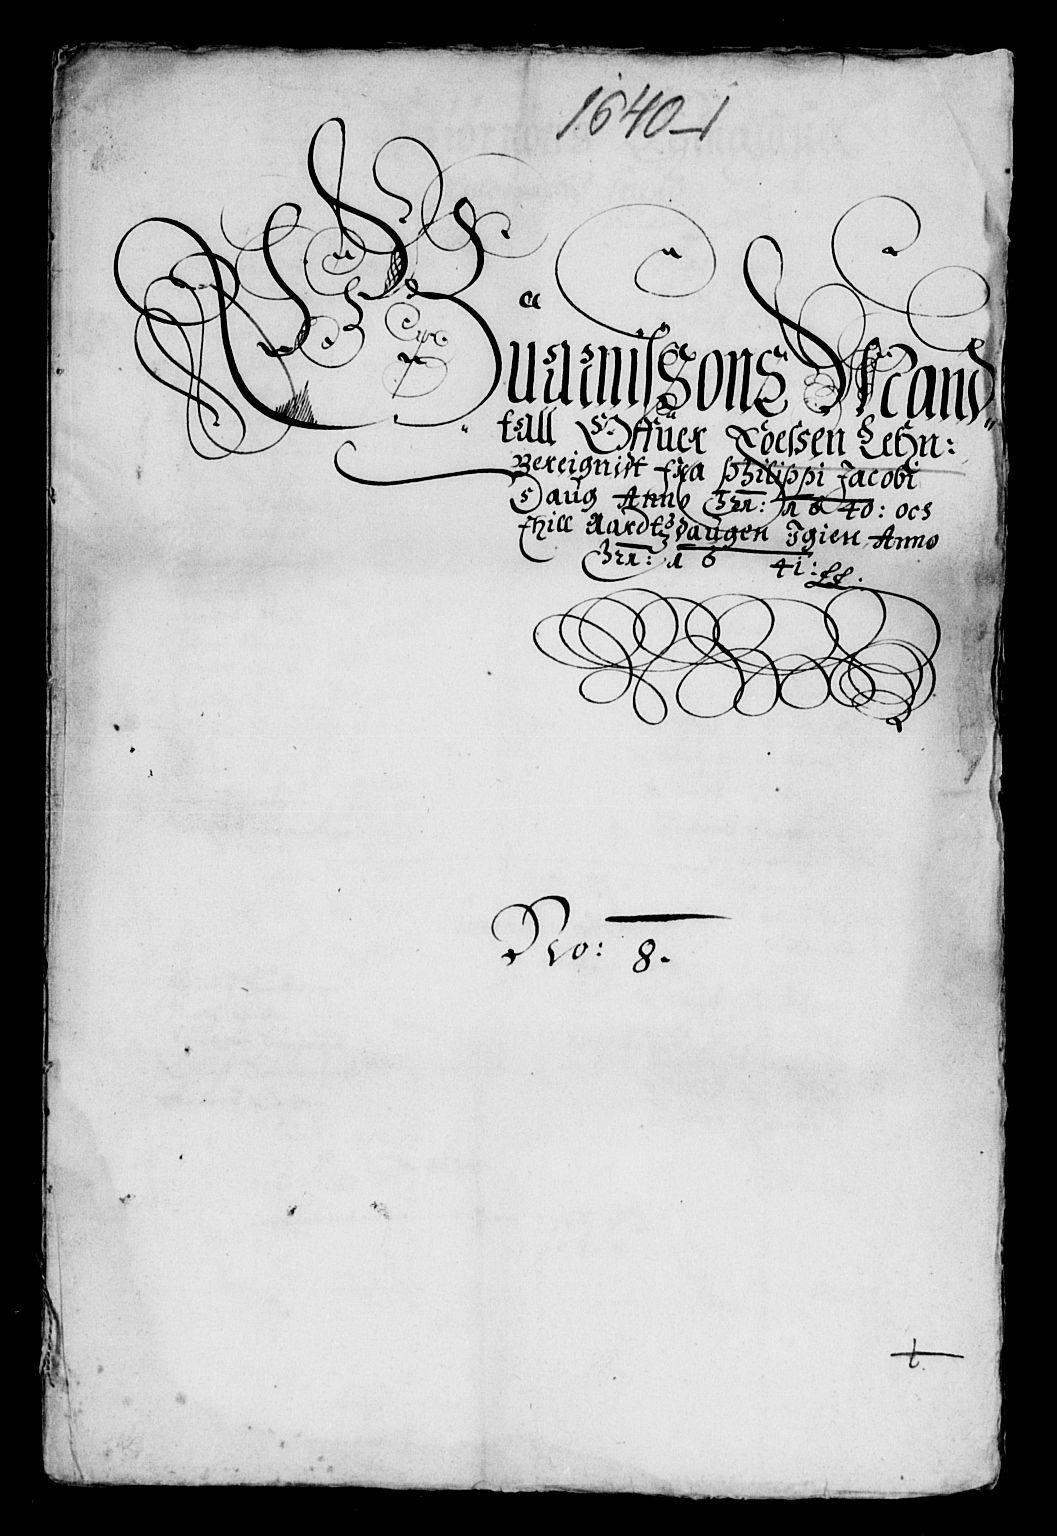 1640–1
Guarnissons Mand
tall Offuer Roessen Lehn:
Bereignist fra Philippi Jacobi
Daug Anno 1640: och
thill Aardtzdaugen Igien Anno
1641:
No: 8.